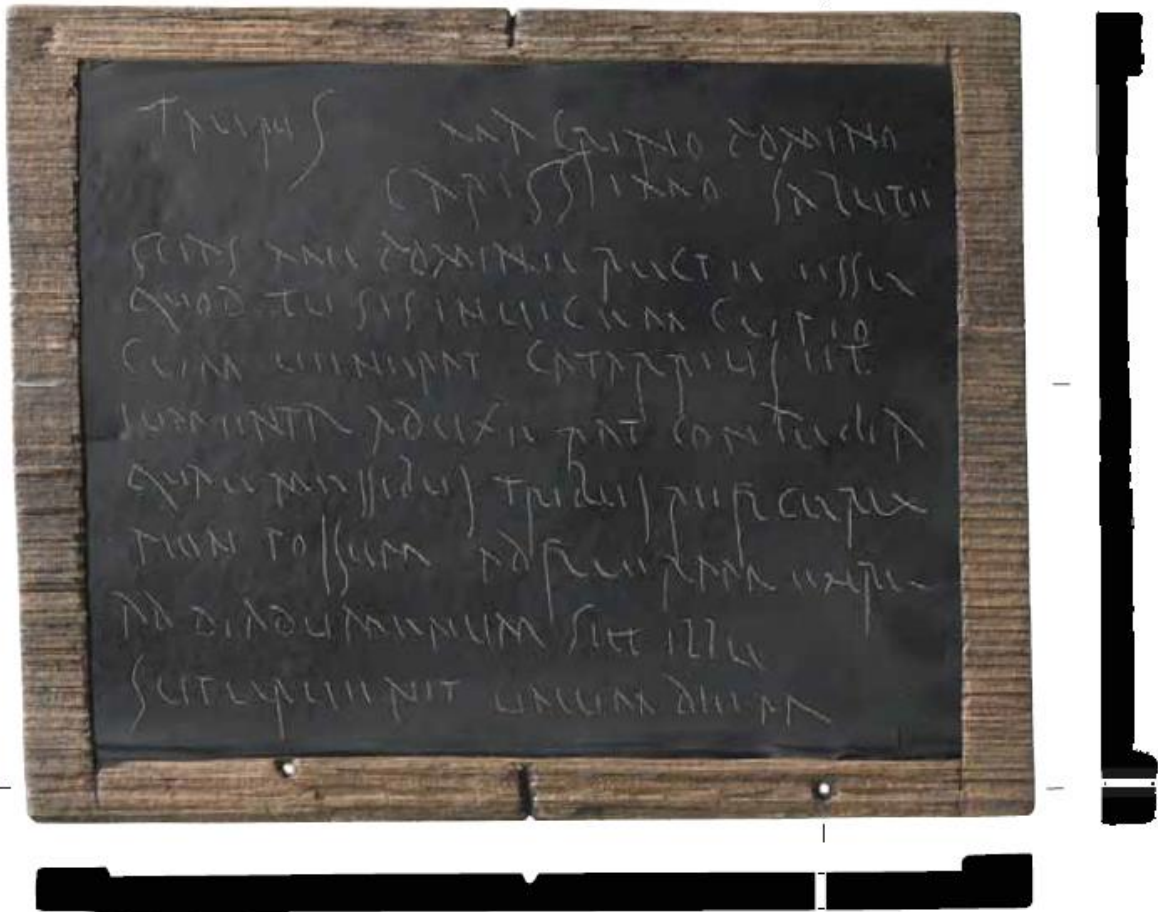 Taurus Macrino domino
carissimo salute
scias me domine recte esse
quod tu sis invicem cupio
cum venerat Catarrius et
iumenta aduxerat compedia
que messibus tribus reficere
non possum adfueram
ad Diadumenum set ille
supervenit unum diem